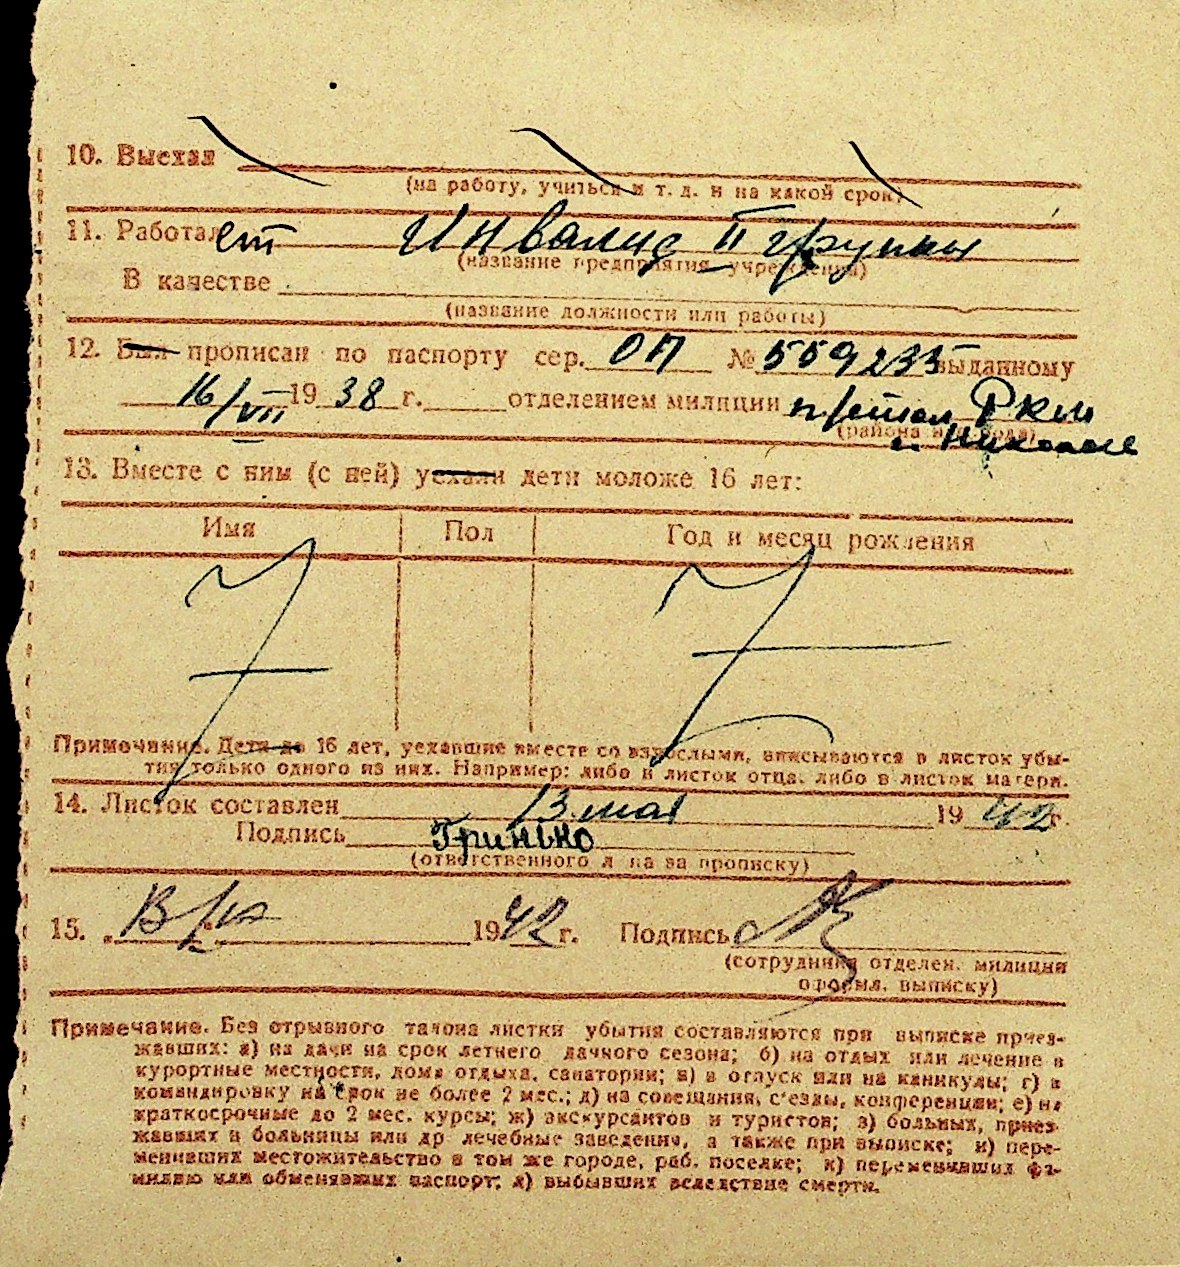 10. Выехал
(на работу, учиться и т. д. и на какой срок)
11. Работает Инвалид II группы
(название предприятия, учреждения)
В качестве
(название должности или работы)
12. Был прописан по паспорту сер. ОП № 559235 выданному
16/VII 1938 г. отделением милиции РКМ
(района и города)
г.
13. Вместе с ним (с ней) уехали дети моложе 16 лет:
Имя Пол Год и месяц рождения
Примечание. Дети до 16 лет, уехавшие вместе со взрослыми, вписываются в листок убы-
тия только одного из них. Например: либо в листок отца, либо в листок матери.
14. Листок составлен 13 мая 1942 г.
Подпись Гринько
(ответственного лица за прописку)
15. 1942 г. Подпись
(сотрудника отделен. милиции
оформл. выписку)
Примечание. Без отрывного талона листки убытия составляются при выписке приез-
жавших: а) на дачи на срок летнего дачного сезона; б) на отдых или лечение в
курортные местности, дома отдыха, санатории; в) в отпуск или на каникулы; г) в
командировку на срок не более 2 мес.; д) на совещания, с'езды, конференции; е) на
краткосрочные до 2 мес. курсы; ж) экскурсантов и туристов; з) больных, приез-
жавших в больницы или др лечебные заведения, а также при выписке; и) пере-
менивших местожительство в том же городе, раб. поселке; к) переменивших фа-
милию или обменявших паспорт; л) выбывших вследствие смерти.